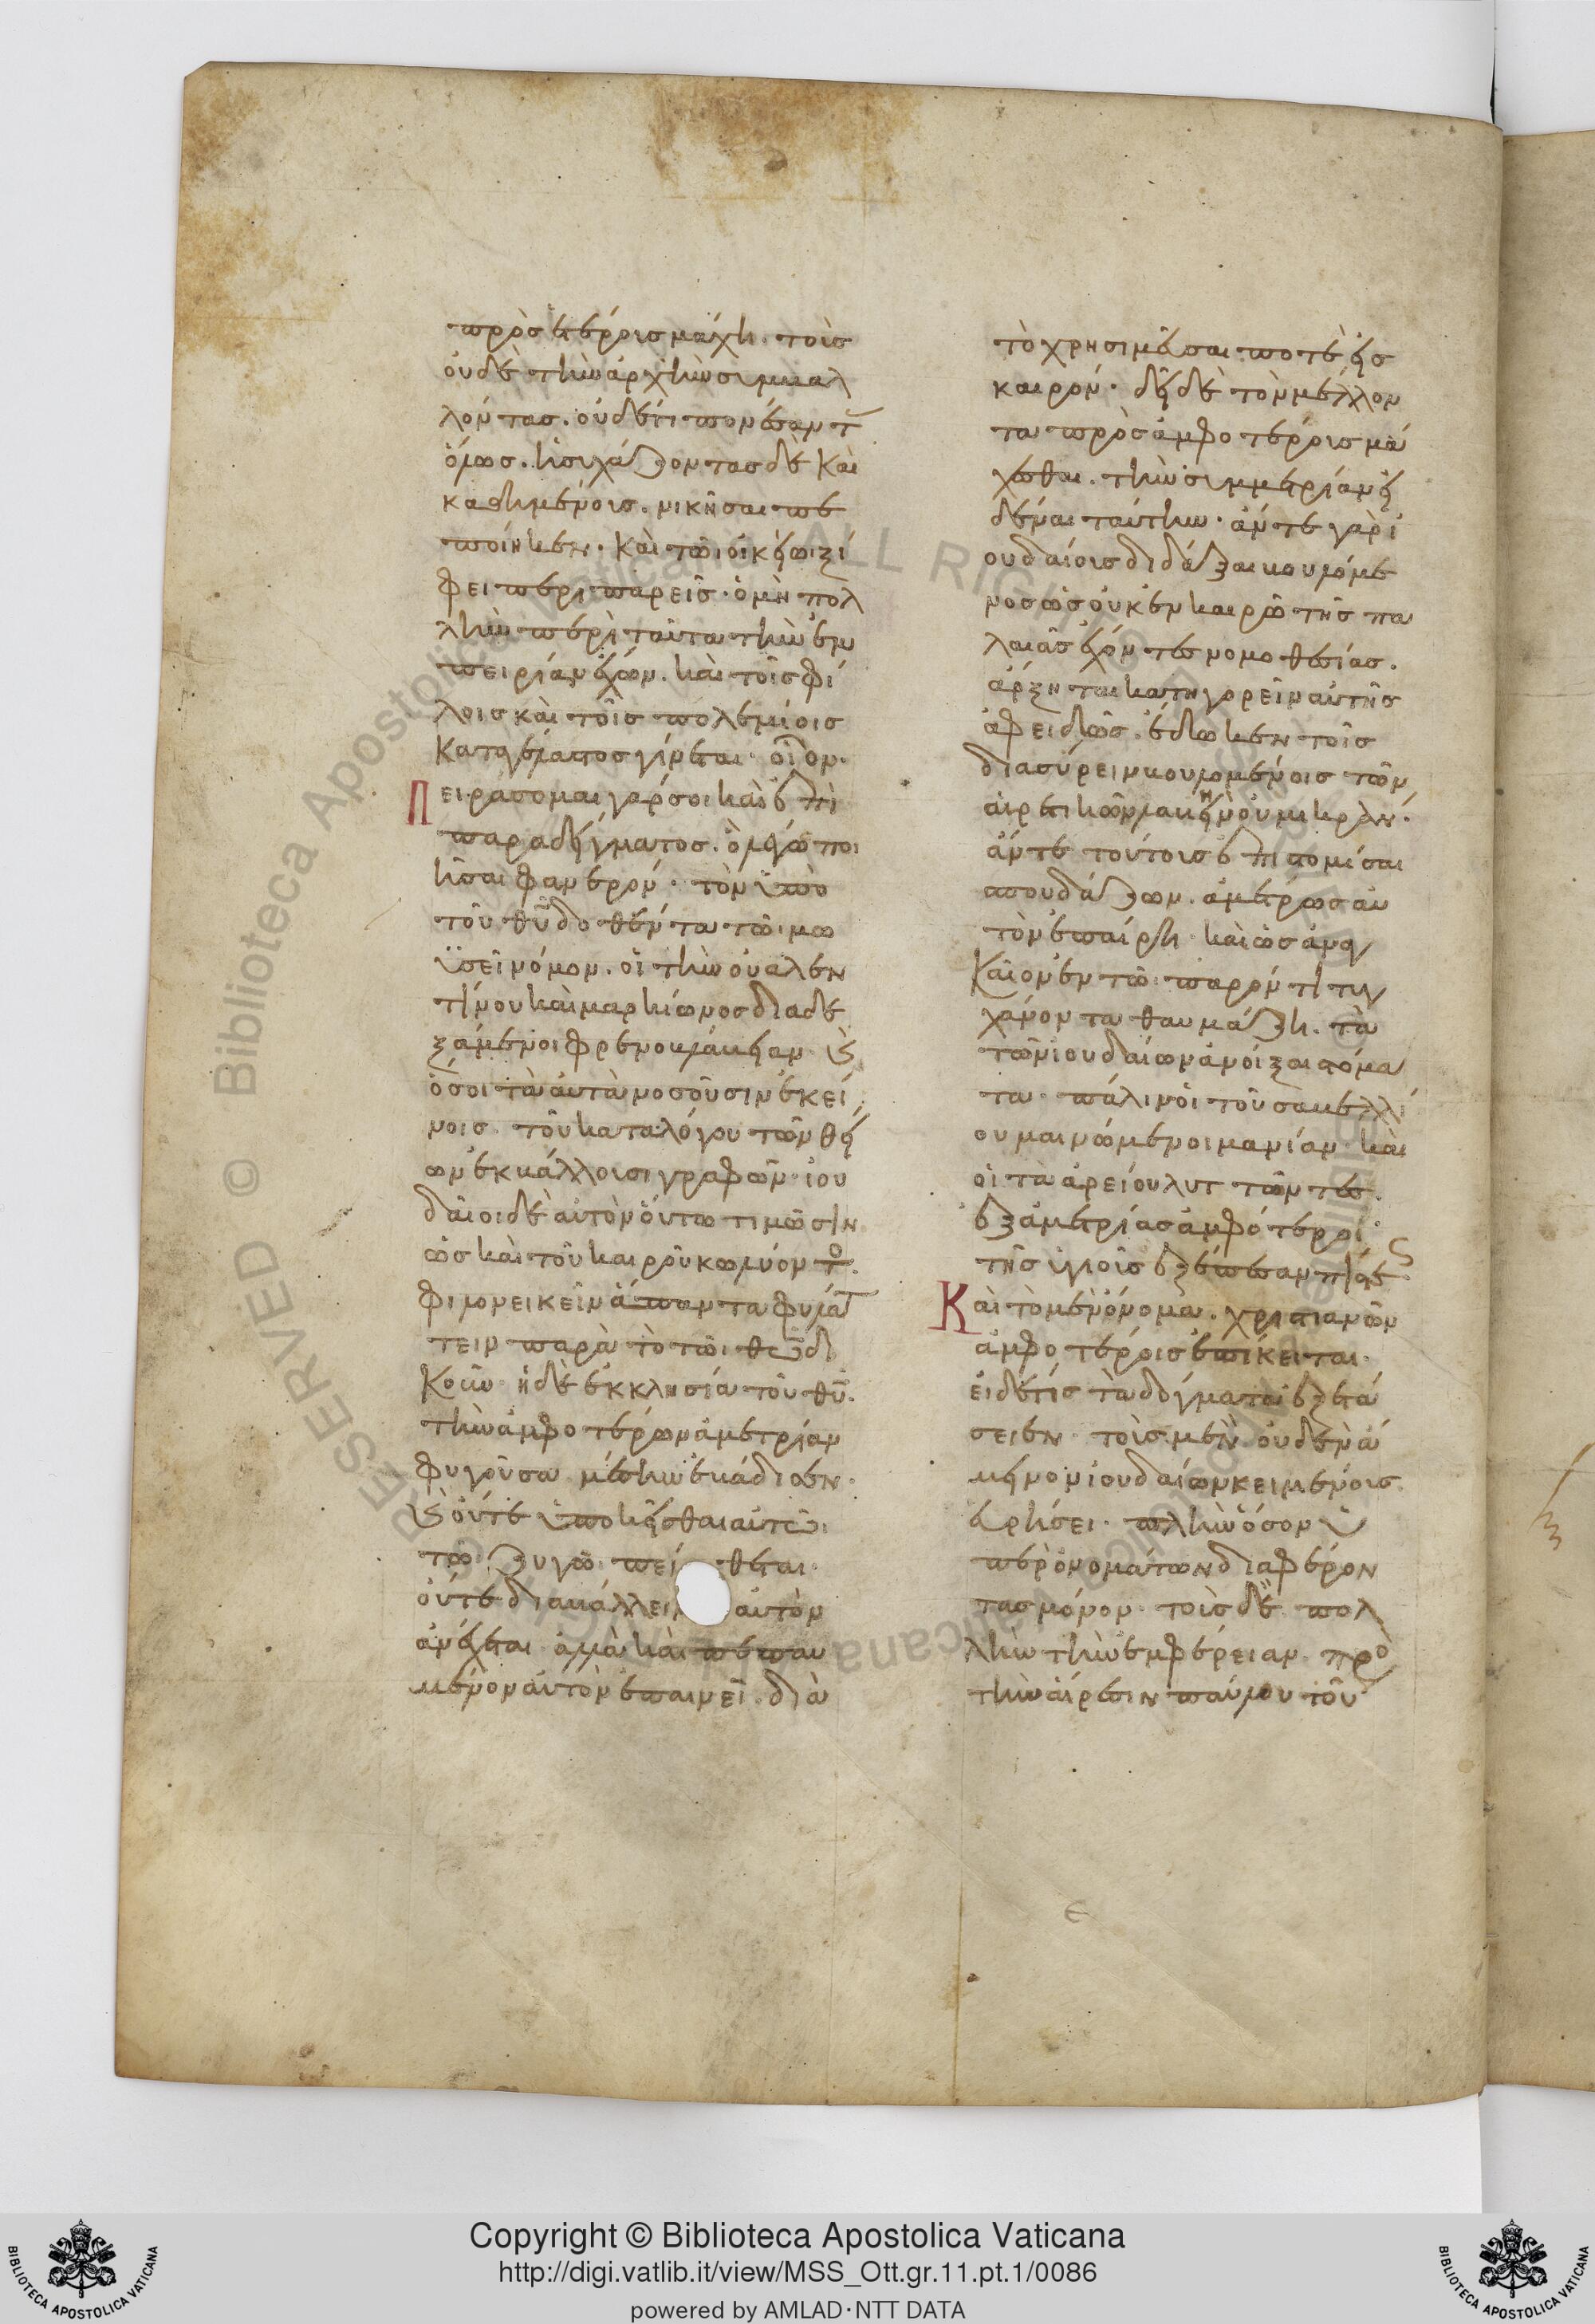 πρὸς ἑτέροις μάχη. τοῖς
οὐδὲ τὴν ἀρχὴν συμβαλ
λόντας. οὐδέτι πονέσαντ
ὅμως. ἡσυχάζοντας δὲ καὶ
καθημένοις. νικῆσαι πε
ποίηκεν. καὶ τῶι οἰκείωι ξί
φει περιπαρεὶς. ὁ μὴ πολ
λὴν περὶ ταῦτα τὴν ἐμ
πειρίαν ἔχων. καὶ τοῖς φί
λοις καὶ τοῖς πολεμίοις
καταγέλαστος γίνεται. οἷον.
Πειράσομαι γάρ σοι καὶ ἐπὶ
παραδείγματος. ὃ λέγω ποι
ῆσαι φανερόν. τὸν ὑπὸ
τοῦ θυ δοθέντα τῶι μω
ϋσεῖ νόμον. οἱ τὴν οὐαλεν
τίνου καὶ μαρκίωνος διαδε
ξάμενοι φρενοβλάβειαν. καὶ
ὅσοι τὰ αὐτὰ νοσοῦσιν ἐκεί
νοις. τοῦ καταλόγου τῶν θεί
ων ἐκβάλλουσι γραφῶν. ἰου
δαῖοι δὲ αὐτὸν οὕτω τιμῶσιν
ὡς καὶ τοῦ καιροῦ κωλύοντο.
φιλονεικεῖν ἅπαντα φυλάτ
τειν παρὰ τὸ τῶι θεῶ δο
κοῦν. ἡ δὲ ἐκκλησία τοῦ θυ.
τὴν ἀμφοτέρων ἀμετρίαν
φυγοῦσα μέσην ἐβάδισεν.
καὶ οὔτε ὑποκεῖσθαι αὐτοῦ
τῶ ζυγῶ πείθεται.
οὔτε διαβάλλειν αὐτὸν
ἀνέχεται ἀλλὰ καὶ πεπαυ
μένον αὐτὸν ἐπαινεῖ. διὰ
τὸ χρησιμεῦσαι ποτὲ εἰς
καιρόν. δεῖ δὲ τὸν μέλλον
τα πρὸς ἀμφοτέροις μά
χεσθαι. τὴν συμμετρίαν εἰ
δέναι ταύτην. ἄν τε γὰρ ἰ
ουδαίοις διδάξαι βουλόμε
νος ὡς οὐκ ἐν καιρῶ τῆς πα
λαιᾶς ἔχοντες νομοθεσίας.
ἄρξηται κατηγορεῖν αὐτῆς
ἀφειδῶς. ἔδωκεν τοῖς
διασύρειν βουλομένοις τῶν
αἱρετικῶν λαβὴν οὐ μικράν.
ἄν τε τούτοις ἐπιστομίσαι
σπουδάζων. ἀμέτρως αὐ
τὸν ἐπαίρη. καὶ ὡς ἀναγ
καῖον ἐν τῶ παρόντι τυγ
χάνοντα θαυμάζη. τὰ
τῶν ἰουδαίων ἀνοίξαι στόμα
τα. πάλιν οἱ τοῦ σαβελλί
ου μαινόμενοι μανίαν. καὶ
οἱ τὰ ἀρείου λυττῶντες.
ἐξ ἀμετρίας ἀμφότεροι
τῆς ὑγιοῦς ἐξέπεσαν πίστεως
Καὶ τὸ μὲν ὄνομα. χριστιανῶν
ἀμφοτέροις ἐπίκειται.
εἰ δέ τις τὰ δόγματα ἐξετά
σειεν. τοὺς μὲν οὐδὲν ἄ
μεινον ἰουδαίων κειμένους
εὑρήσει. πλὴν ὅσον ὑ
πὲρ ὀνομάτων διαφέρον
τας μόνον. τοὺς δὲ πολ
λὴν τὴν ἐμφέρειαν. πρὸς
τὴν αἵρεσιν παύλου τοῦ
Copyright © Biblioteca Apostolica Vaticana
http://digi.vatlib.it/view/MSS_Ott.gr.11.pt.1/0086
powered by AMLAD·NTT DATA